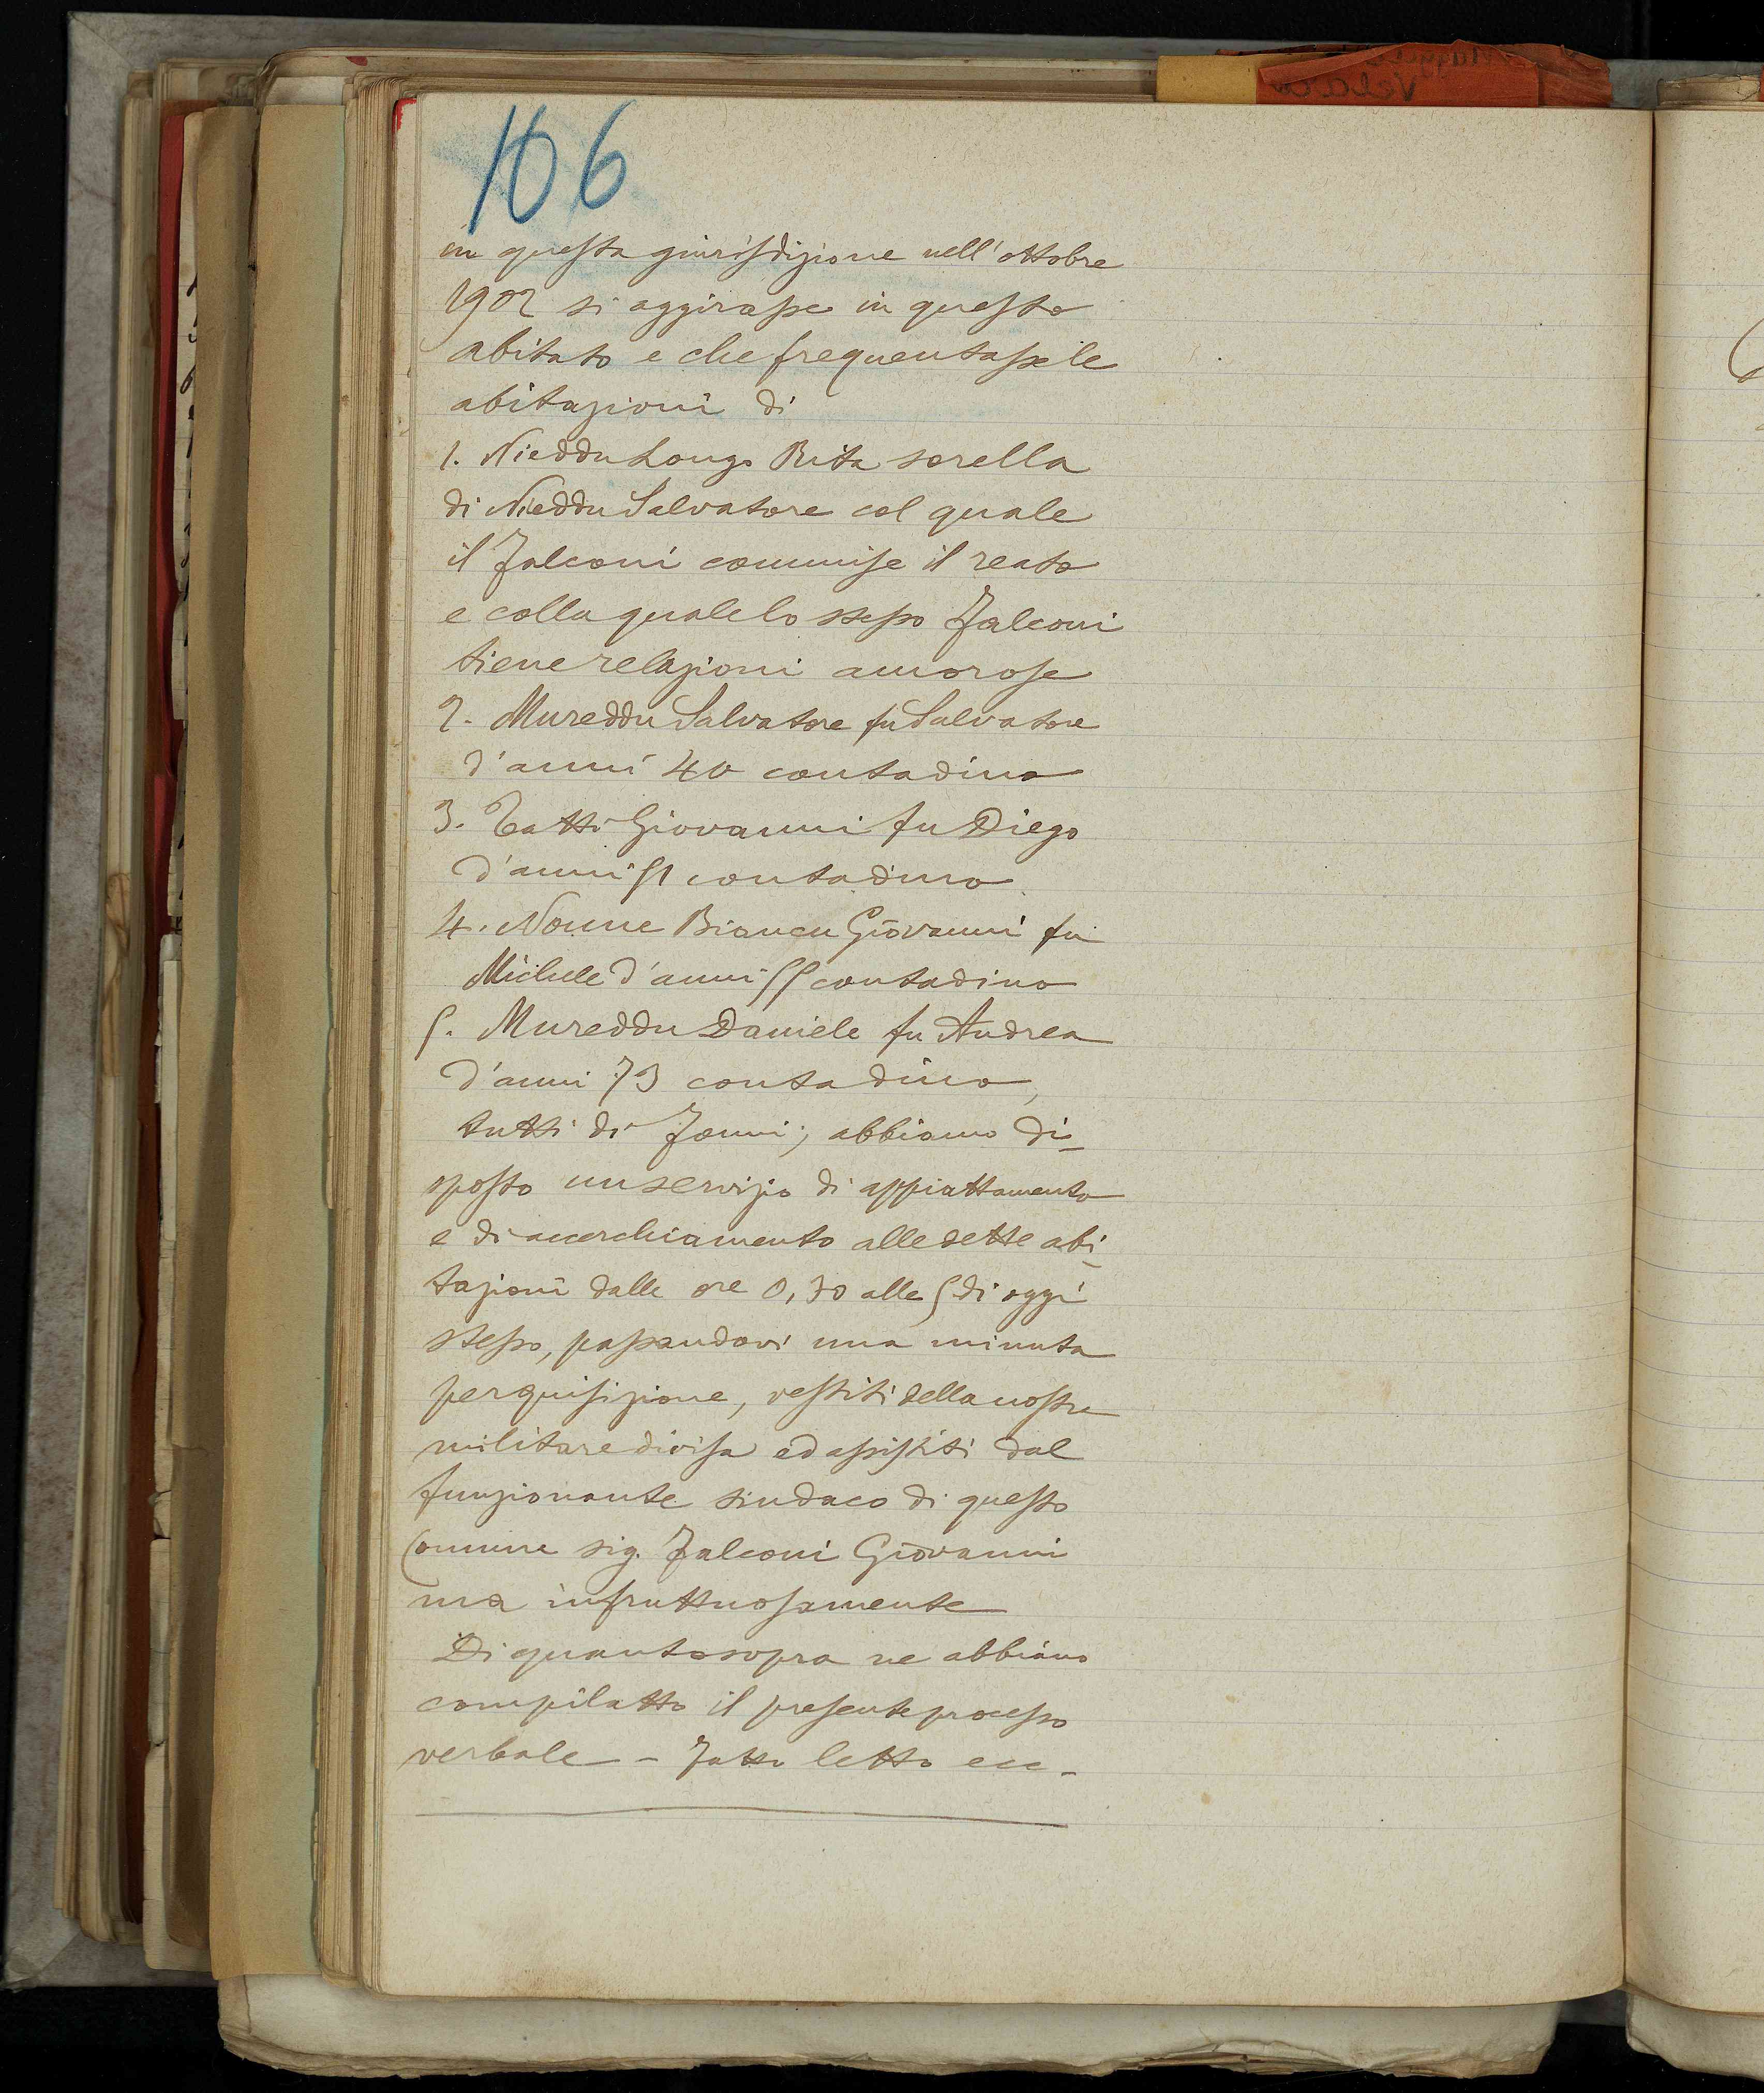 106
in questa giurisdizione nell'ottobre
1902 si aggirasse in questo
abitato e che frequentasse le
abitazioni di
1. Nieddu Longo Rita sorella
di Nieddu Salvatore col quale
il Falconi commise il reato
e colla quale lo stesso Falconi
tiene relazioni amorose
2. Mureddu Salvatore fu Salvatore
d'anni 40 contadino
3. Tatti Giovanni fu Diego
d'anni 51 contadino
4. Nonne Biancu Giovanni fu
Michele d'anni 55 contadino
5. Mureddu Daniele fu Andrea
d'anni 73 contadino,
tutti di Fonni; abbiamo di-
sposto un servizio di appiattamento
e di accerchiamento alle dette abi-
tazioni dalle ore 0,30 alle 5 di oggi
stesso, passandovi una minuta
perquisizione, vestiti della nostra
militare divisa ed assistiti dal
funzionante sindaco di questo
Comune sig. Falconi Giovanni
ma infruttuosamente
Di quanto sopra ne abbiamo
compilatto il presente processo
verbale - Fatto letto ecc -